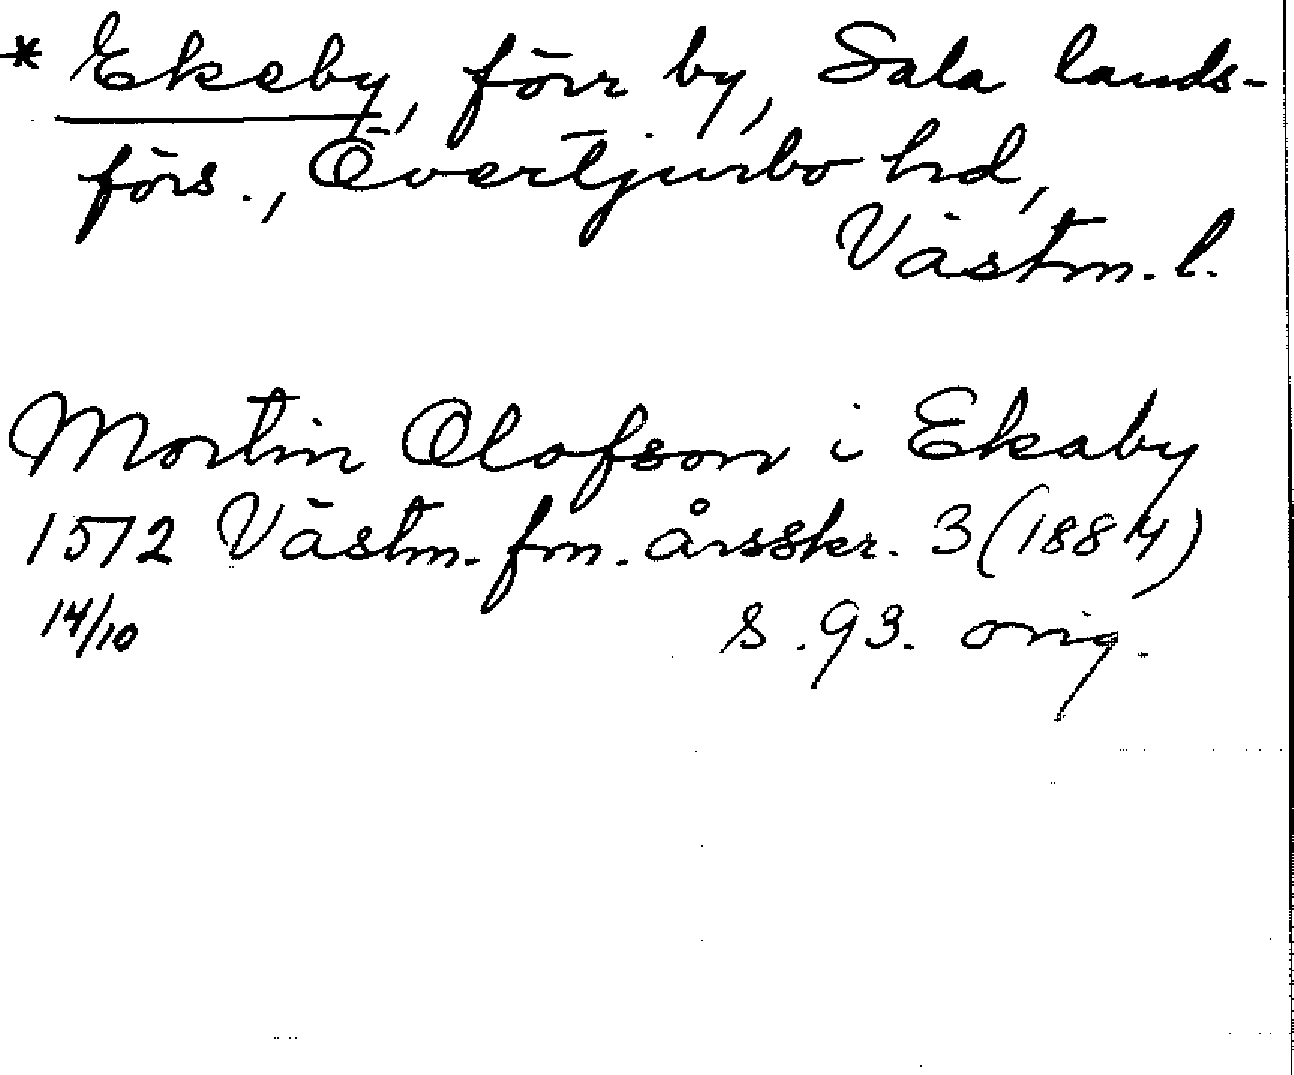 * Ekeby, förr by, Sala lands-
förs., Övertjurbo hd,
Västm. l.
Mortin Olofson i Ekaby
1572 Västm. fm. årsskr. 3 (1884)
14/10 s. 93. orig.